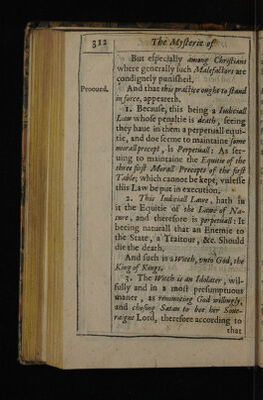 312 The Mysterie of
But especially among Christians
where generally such Malefactors are
condignely punished.
Prooued. And that this practice ought to stand
in force, appeareth.
1. Because, this being a Iudiciall
Law whose penaltie is death, seeing
they haue in them a perpetuall equi-
tie, and doe serue to maintaine some
morall precept, is Perpetuall: As ser-
uing to maintaine the Equitie of the
three first Morall Precepts of the first
Table; which cannot be kept, vnlesse
this Law be put in execution.
2. This Iudiciall Lawe, hath in
it the Equitie of the Lawe of Na-
ture, and therefore is perpetuall: It
beeing naturall that an Enemie to
the State, a Traitour, &c. Should
die the death.
And such is a Witch, vnto God, the
King of Kings.
3. The Witch is an Idolater, wil-
fully and in a most presumptuous
maner, as renouncing God willingly,
and chosing Satan to bee her Soue-
raigne Lord, therefore according to
that